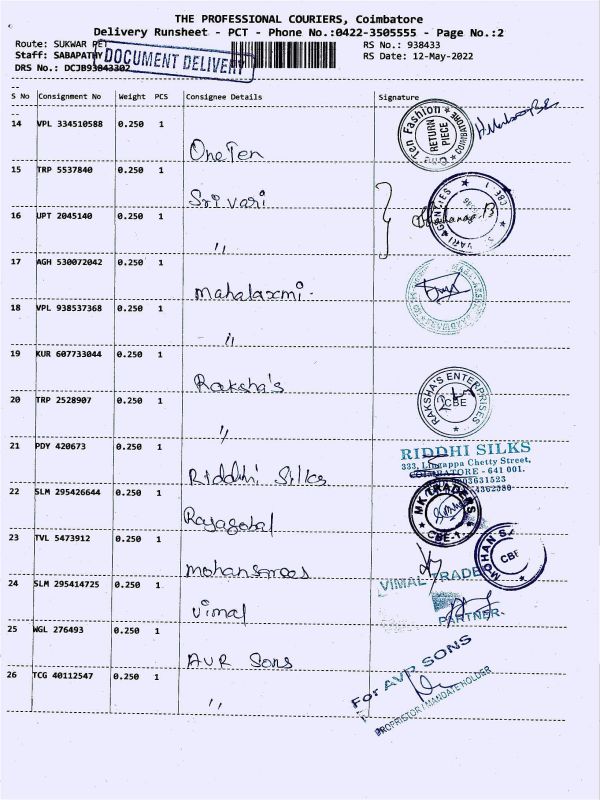 THE PROFESSIONAL COURIERS, Coimbatore
Delivery Runsheet - PCT - Phone No.:0422-3505555 - Page No.:2
Route: SUKWAR PET
RS No.: 938433
Staff: SABAPATHY
DOCUMENT DELIVERY
RS Date: 12-May-2022
DRS No.: DCJB93843302
S No Consignment No Weight PCS Consignee Details Signature
14 VPL 334510588 0.250 1
One Ten
Ten Fashion
RETURN PIECE
COIMBATORE
15 TRP 5537840 0.250 1
Sri vari
16 UPT 2045140 0.250 1
"
VARI AGENCIES
CBE-1
17 AGH 530072042 0.250 1
Mahalaxmi -
18 VPL 938537368 0.250 1
"
19 KUR 607733044 0.250 1
Raksha's
RAKSHA'S ENTERPRISES
CBE
20 TRP 2528907 0.250 1
"
21 PDY 420673 0.250 1
Riddhi Silks
RIDDHI SILKS
333, Lingappa Chetty Street,
COIMBATORE - 641 001.
22 SLM 295426644 0.250 1
Rajagopal
MK TRADERS
CBE-1
23 TVL 5473912 0.250 1
Mohan Sarees
MOHAN S
CBE
24 SLM 295414725 0.250 1
Vimal
VIMAL TRADE
PARTNER.
25 WGL 276493 0.250 1
AVR Sons
For AVR SONS
PROPRIETOR / MANDATE HOLDER
26 TCG 40112547 0.250 1
"